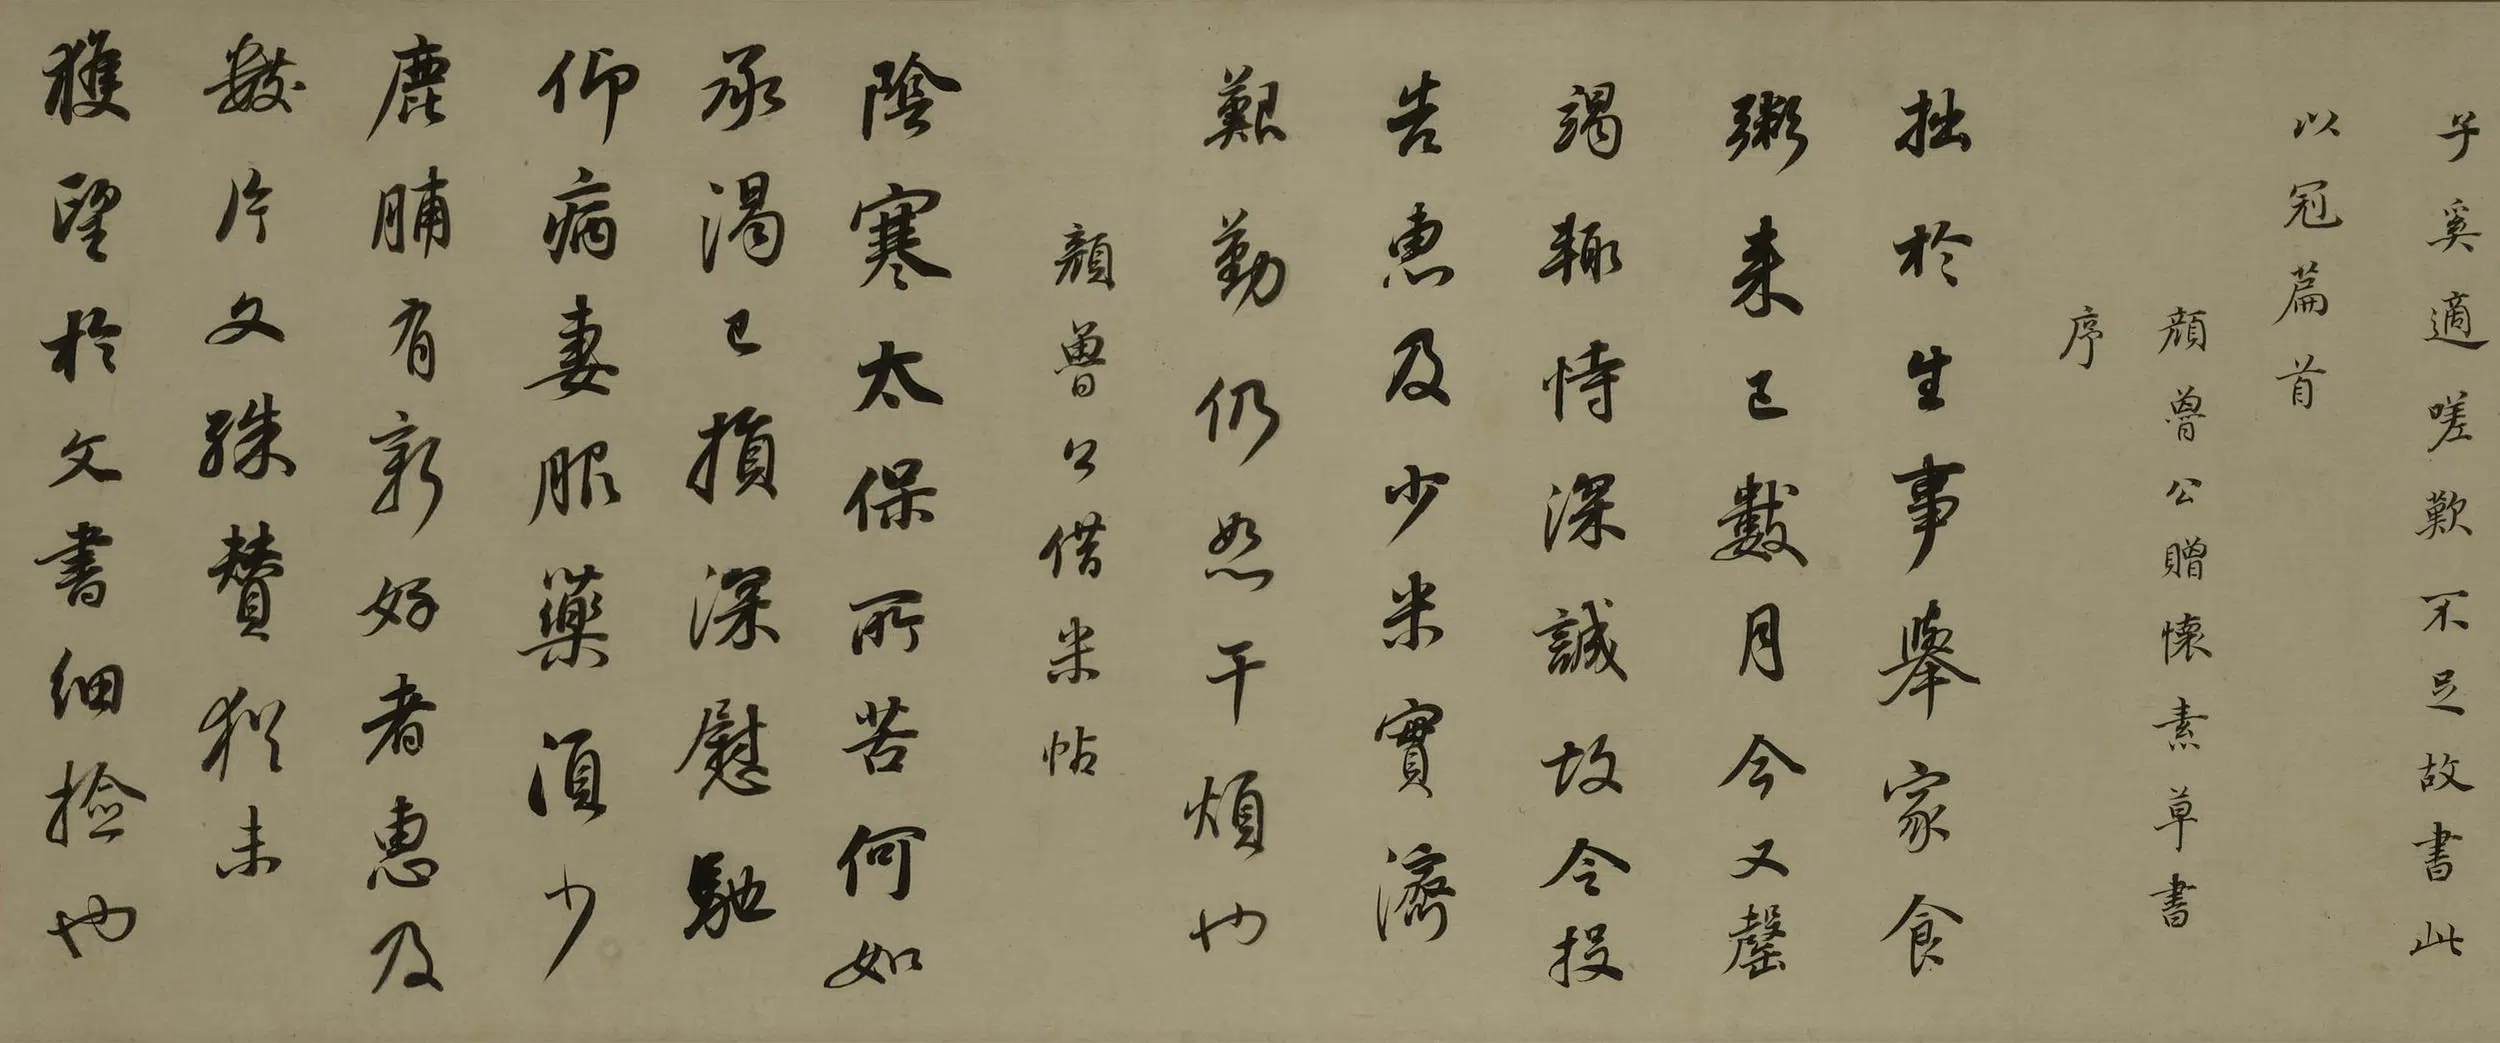 子奚適嗟歎不足故書此
以冠篇首
顏魯公贈懷素草書
序
拙於生事舉家食
粥来已數月今又罄
竭輙恃深誠故令投
告惠及少米實濟
艱勤仍恕干煩也
顏魯公借米帖
陰寒太保所苦何如
承渴已損深慰馳
仰病妻服藥須少
鹿脯有新好者惠及
數片又殊贊猶未
獲望於文書細撿也